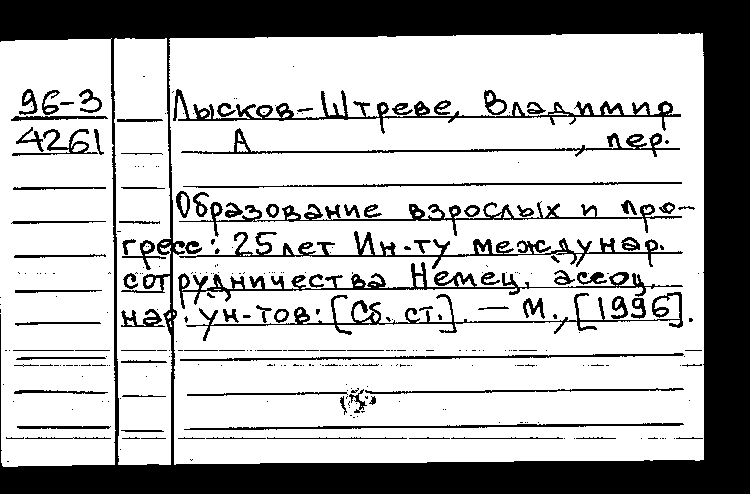 96-3 Лысков-Штреве, Владимир
4261 А , пер.
Образование взрослых и про-
гресс: 25 лет Ин-ту междунар.
сотрудничества Немец. ассоц.
нар. ун-тов: [Сб. ст.]. — М., [1996].